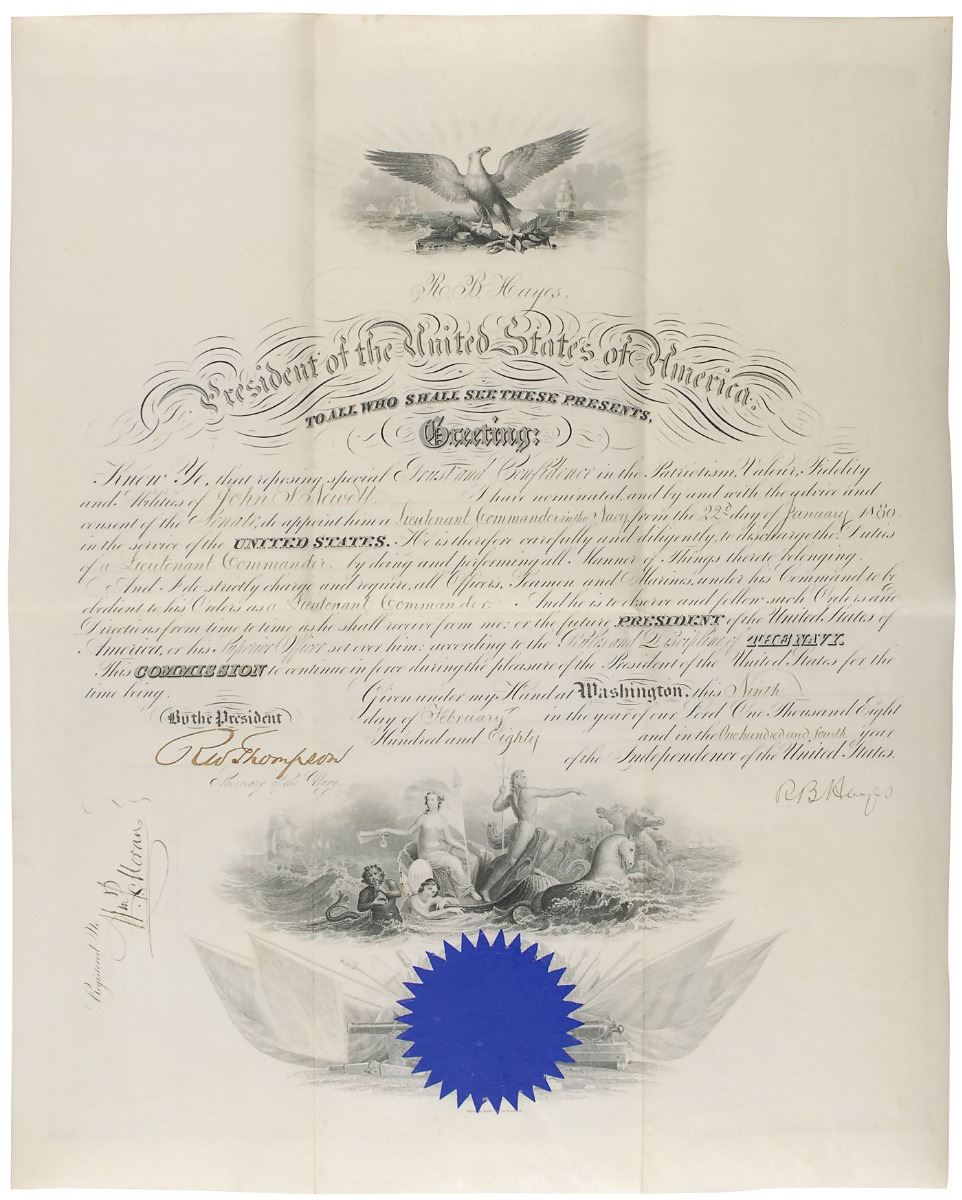 R. B. Hayes.
President of the United States of America.
TO ALL WHO SHALL SEE THESE PRESENTS,
Greeting:
Know Ye, that reposing special Trust and Confidence in the Patriotism, Valour, Fidelity
and Abilities of John S. Newell I have nominated, and by and with the advice and
consent of the Senate, do appoint him a Lieutenant Commander in the Navy from the 22d day of January 1880
in the service of the UNITED STATES. He is therefore carefully and diligently, to discharge the Duties
of a Lieutenant Commander by doing and performing all Manner of Things thereto belonging.
And I do strictly charge and require, all Officers, Seamen and Marines, under his Command to be
obedient to his Orders as a Lieutenant Commander. And he is to observe and follow such Orders and
Directions from time to time as he shall receive from me; or the future PRESIDENT of the United States of
America, or his Superior Officer set over him; according to the Rules and Discipline of THE NAVY.
This COMMISSION to continue in force during the pleasure of the President of the United States for the
time being. Given under my Hand at Washington, this Ninth
day of February in the year of our Lord One Thousand Eight
Hundred and Eighty and in the One hundred and fourth year
of the Independence of the United States.
By the President
RW Thompson
Secretary of the Navy.
RB Hayes
Registered No.